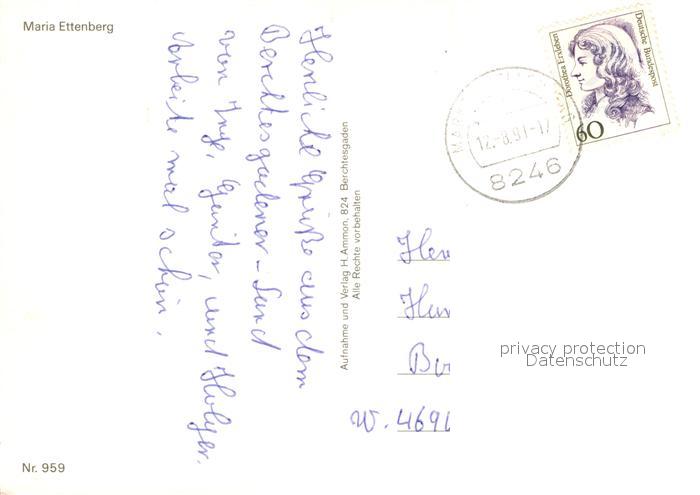 Maria Ettenberg
Herzliche Grüße aus dem
Berchtesgadener-Land
von Inge, Günter, und Holger.
Arbeite mal schön.
Nr. 959
Aufnahme und Verlag H. Ammon, 824 Berchtesgaden
Alle Rechte vorbehalten
12.-8.91-17
8246
Dorothea Erxleben
Deutsche Bundespost
60
W. 469
privacy protection
Datenschutz